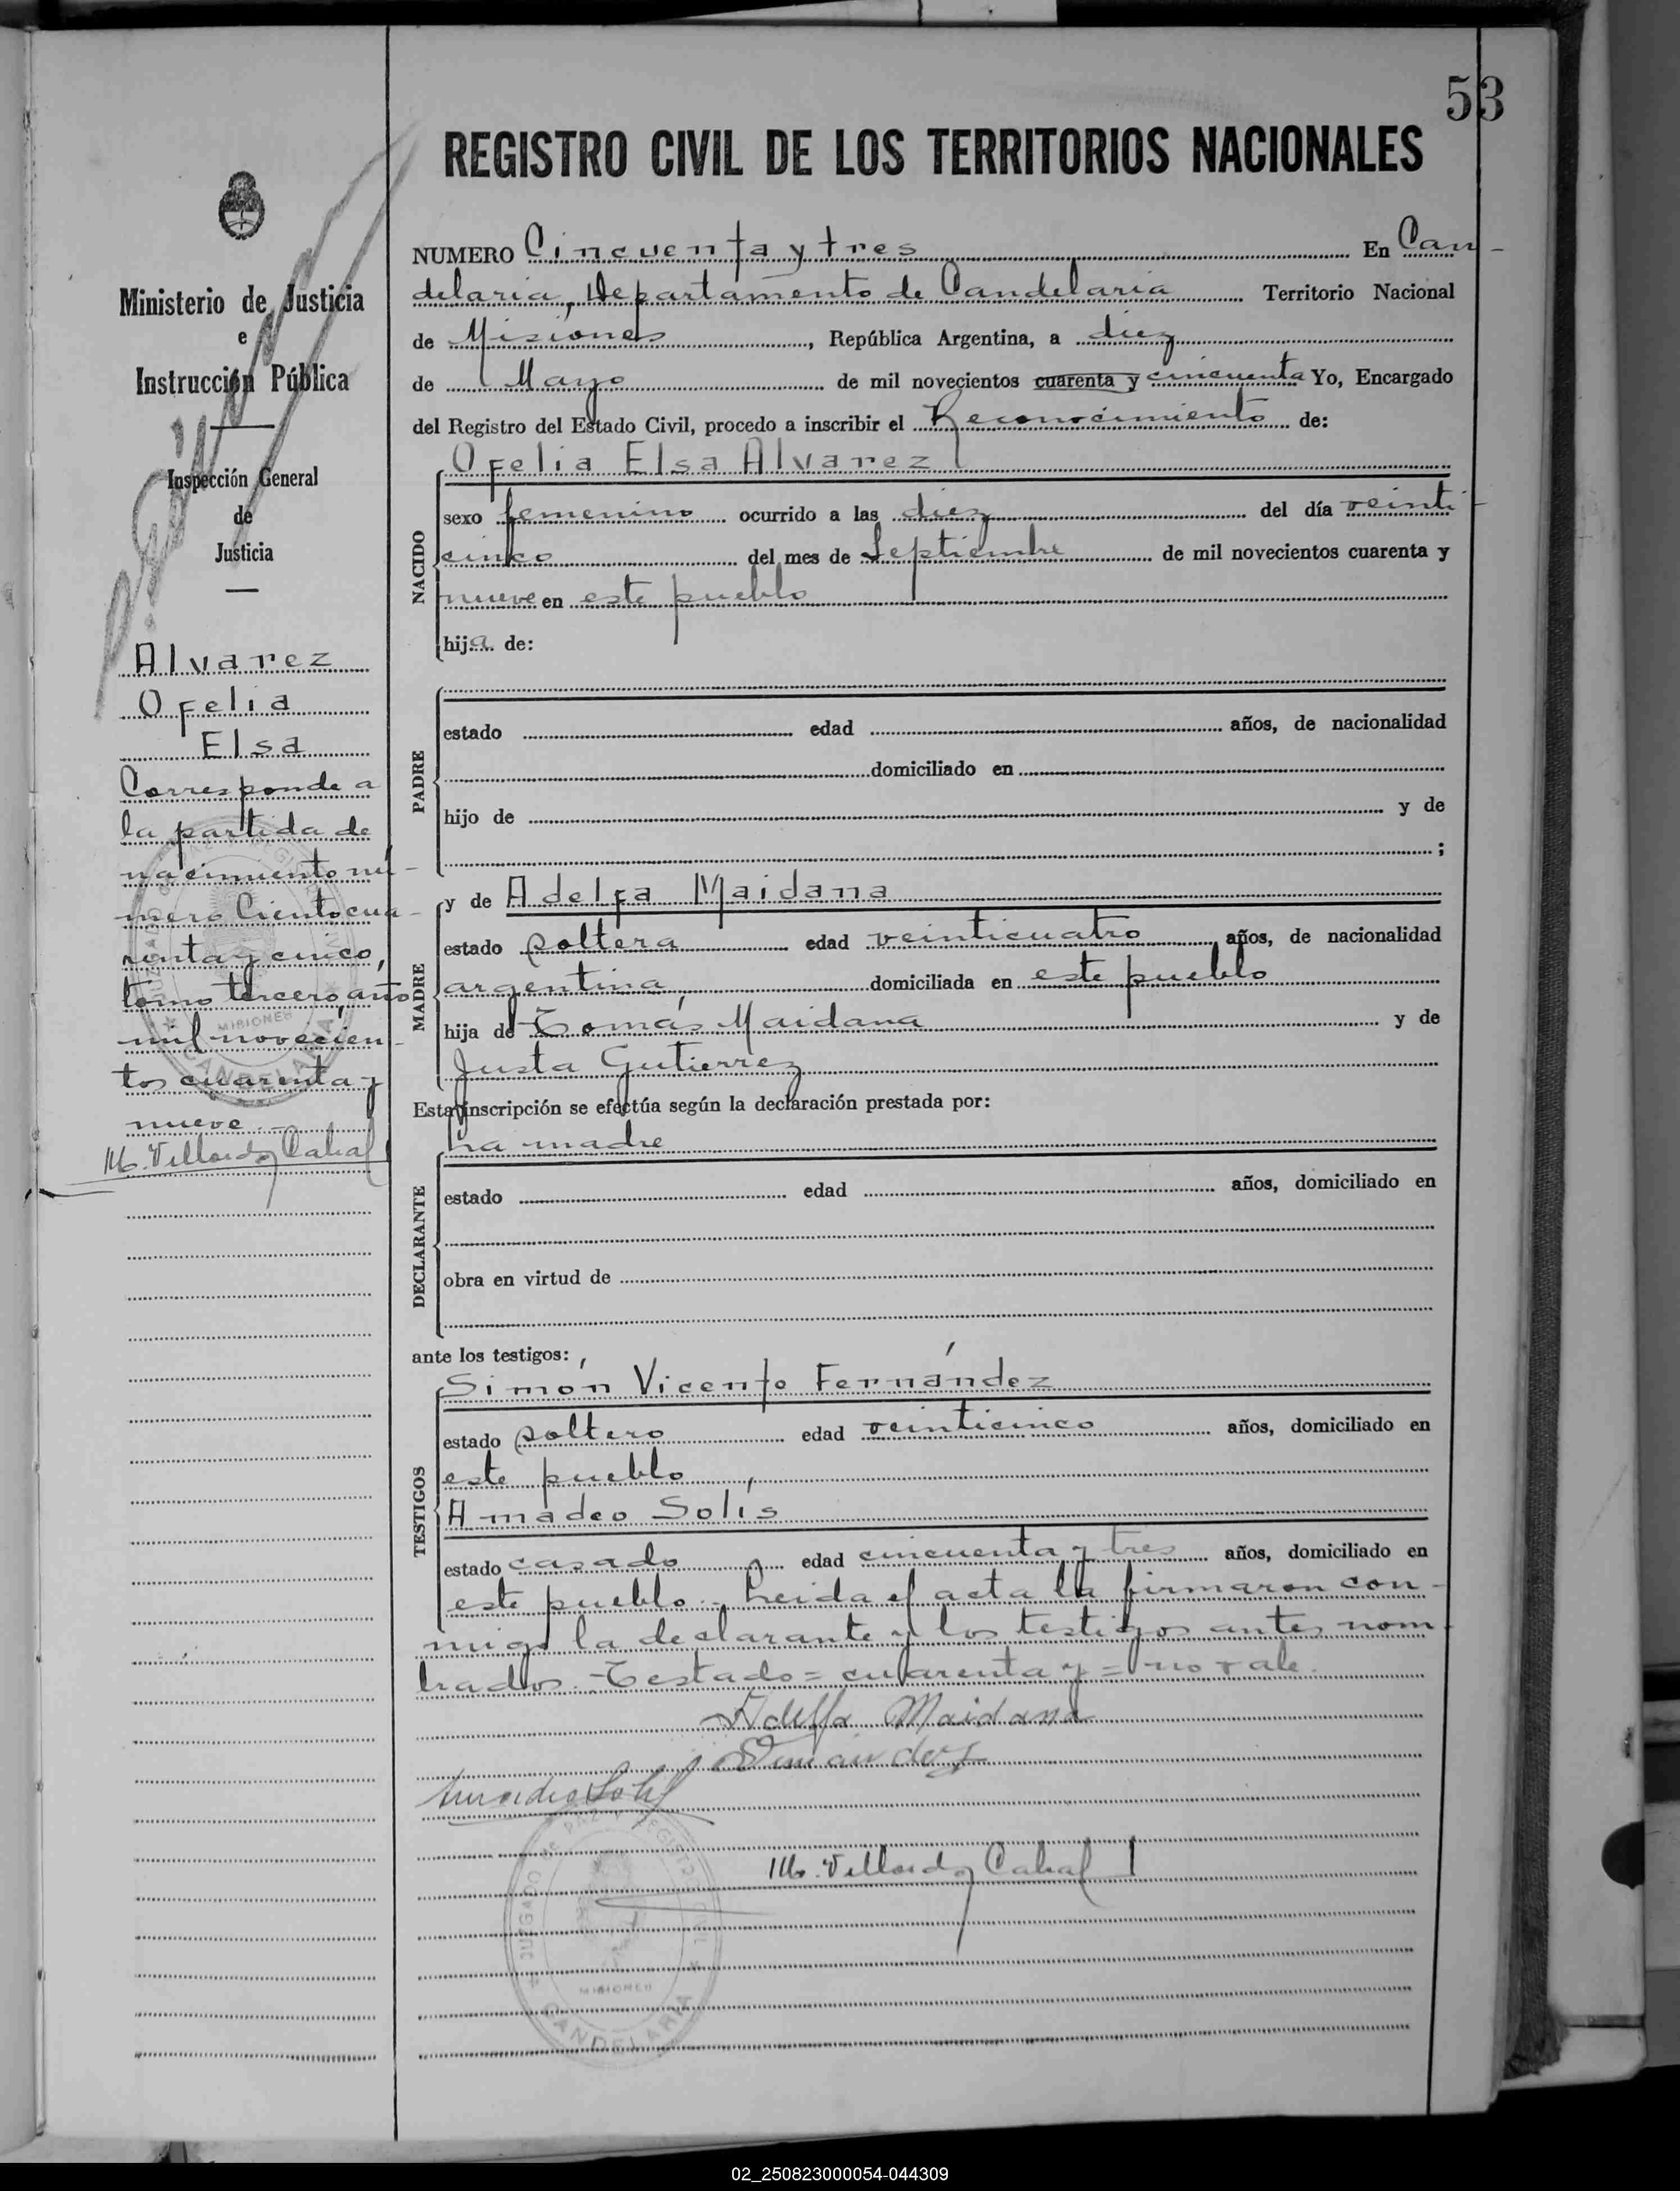 53
REGISTRO CIVIL DE LOS TERRITORIOS NACIONALES
Ministerio de Justicia
e
Instrucción Pública
Inspección General
de
Justicia
Alvarez
Ofelia
Elsa
Corresponde a
la partida de
nacimiento nú-
mero Ciento cua-
renta y cinco,
tomo tercero, año
mil novecien-
tos cuarenta y
nueve.-
M. Villordo y Cabral
NUMERO Cincuenta y tres En Can-
delaria, Departamento de Candelaria Territorio Nacional
de Misiones, República Argentina, a diez
de Mayo de mil novecientos cuarenta y cincuenta Yo, Encargado
del Registro del Estado Civil, procedo a inscribir el Reconocimiento de:
Ofelia Elsa Alvarez
NACIDO
sexo femenino ocurrido a las diez del día veinti-
cinco del mes de Septiembre de mil novecientos cuarenta y
nueve en este pueblo
hija de:
PADRE
estado edad años, de nacionalidad
domiciliado en
hijo de y de
;
MADRE
y de Adelfa Maidana
estado soltera edad veinticuatro, años, de nacionalidad
argentina, domiciliada en este pueblo
hija de Tomás Maidana y de
Justa Gutierrez
Esta inscripción se efectúa según la declaración prestada por:
La madre
DECLARANTE
estado edad años, domiciliado en
obra en virtud de
ante los testigos:
TESTIGOS
Simón Vicente Fernández
estado soltero edad veinticinco años, domiciliado en
este pueblo,
Amadeo Solís
estado casado edad cincuenta y tres años, domiciliado en
este pueblo.- Leida el acta la firmaron con-
migo la declarante y los testigos antes nom-
brados.-Testado=cuarenta y=no vale.
Adelfa Maidana
Fernández
Amadeo Solís
M. Villordo y Cabral
JUZGADO DE PAZ Y REGISTRO CIVIL
MISIONES
CANDELARIA
02_250823000054-044309